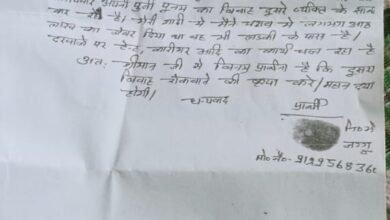 अपनी पुत्री पुनम का विवाह दुसरे व्यक्ति के साथ
कर रही है। मेरी शादी में मैंने चढ़ाव में लगभग आठ
लाख का जेवर दिया था वह भी लड़की के पास है।
दरवाजे पर टेन्ट, कारीगर आदि का कार्य चल रहा है
अतः श्रीमान जी से विनम्र प्रार्थना है कि दुसरा
विवाह रोकवाने की कृपा करे। महान दया
होगी।
धन्यवाद
प्रार्थी
नि0अं0
जग्गू
मो0 नं0-